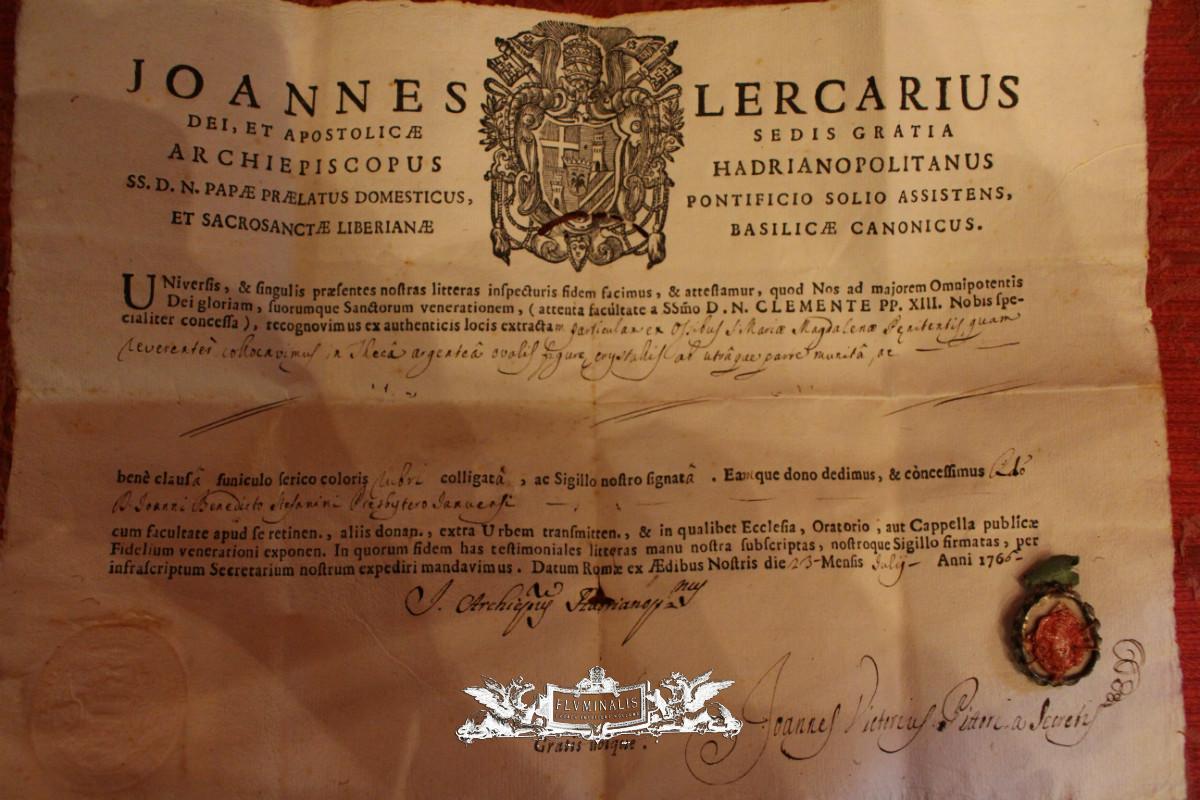 JOANNES LERCARIUS
DEI, ET APOSTOLICÆ SEDIS GRATIA
ARCHIEPISCOPUS HADRIANOPOLITANUS
SS. D. N. PAPÆ PRÆLATUS DOMESTICUS, PONTIFICIO SOLIO ASSISTENS,
ET SACROSANCTÆ LIBERIANÆ BASILICÆ CANONICUS.
UNiversis, & singulis præsentes nostras litteras inspecturis fidem facimus, & attestamur, quod Nos ad majorem Omnipotentis
Dei gloriam, suorumque Sanctorum venerationem, (attenta facultate a SSmo D. N. CLEMENTE PP. XIII. Nobis spe-
cialiter concessa), recognovimus ex authenticis locis extractam particulam ex Ossibus S. Mariæ Magdalenæ Penitentis quam
reverenter collocavimus in Thecâ argenteâ ovalis figuræ crystallis ab utrâque parte munitâ, ac
benè clausâ funiculo serico coloris rubri colligatâ, ac Sigillo nostro signatâ. Eamque dono dedimus, & concessimus
D. Joanni Benedicto Stefanini Presbytero Januensi
cum facultate apud se retinen., aliis donan., extra Urbem transmitten., & in qualibet Ecclesia, Oratorio, aut Cappella publicæ
Fidelium venerationi exponen. In quorum fidem has testimoniales litteras manu nostra subscriptas, nostroque Sigillo firmatas, per
infrascriptum Secretarium nostrum expediri mandavimus. Datum Romæ ex Ædibus Nostris die 23 Mensis Julij Anni 1766
J. Archiepus Hadrianopnus
FLVMINALIS
Joannes Victorius Secrets
Gratis ubique.